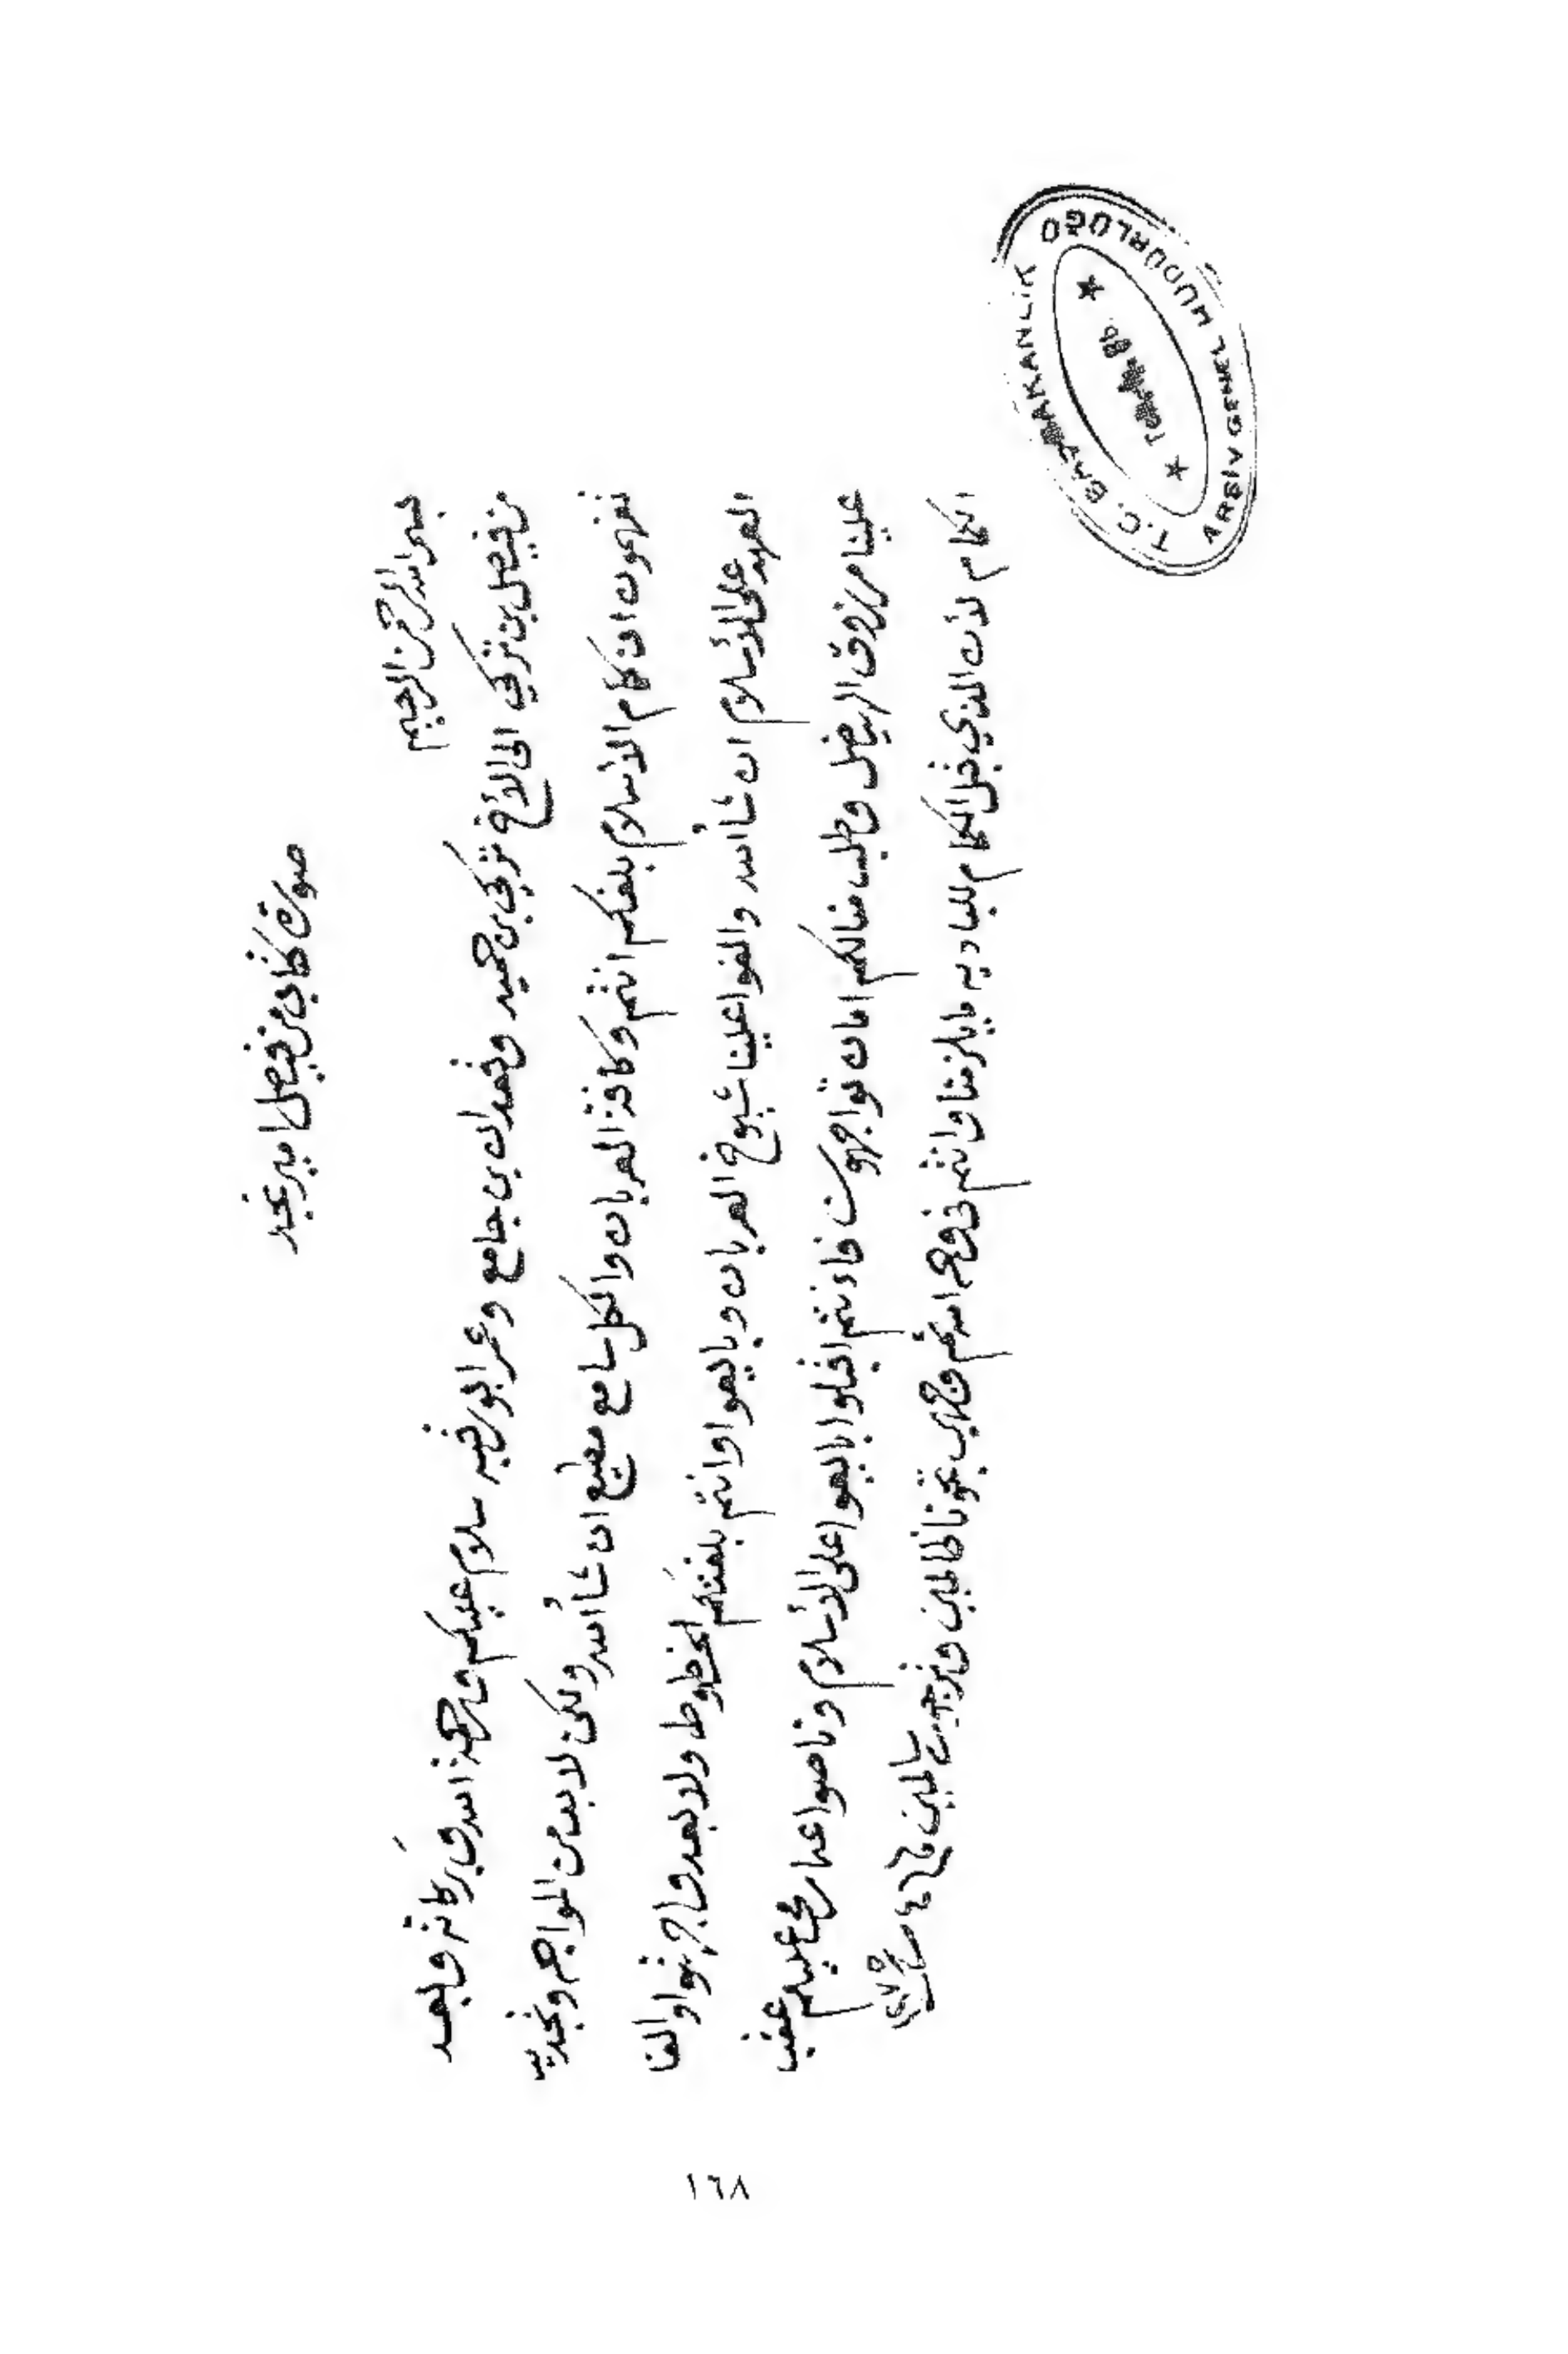 صورة كتاب من فيصل امير نجد
بسم الله الرحمن الرحيم
من فيصل بن تركي الى الأخ تركي بن حميد وفهد بن جامع وعمر ابو رقبه سلام عليكم ورحمة الله وبركاته وبعد
تفهمون ان كام الأسلام بلغكم انتم وكافة العربان والكل سامع مطيع ان شأ الله ولكن لا بد من المواجهه ونجديد
العهد على الأسلام ان شأ الله والفوا علينا شيوخ العربان وبايعوا وانتم بلغتكم الخطوط ولا بعد واجهتوا والفا
علينا مرزوق الهيضل وطلب منا لكم امان تواجهون فاانتم اقبلوا بايعوا على الأسلام وناصوا عمار مح عليكم عقب
الكام لأن الذي قبل الكام للباديه ما يلزمنا وانتم في وجه الله ثم وجهي تجونا طالبين وترجعون سالمين
١٦٨
T.C. BAŞBAKANLIK
ARŞİV GENEL MÜDÜRLÜĞÜ